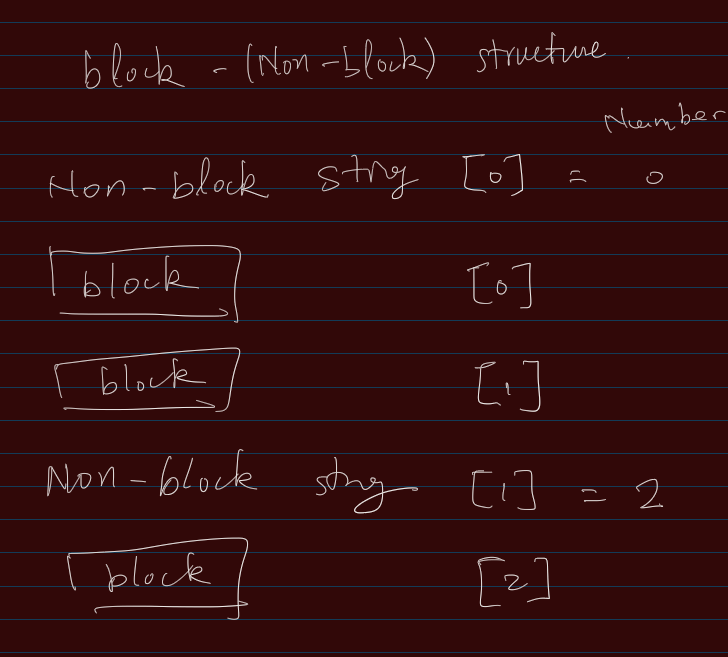 block - (Non-block) structure.
Number
Non-block string [0] = 0
block [0]
block [1]
Non-block string [1] = 2
block [2]